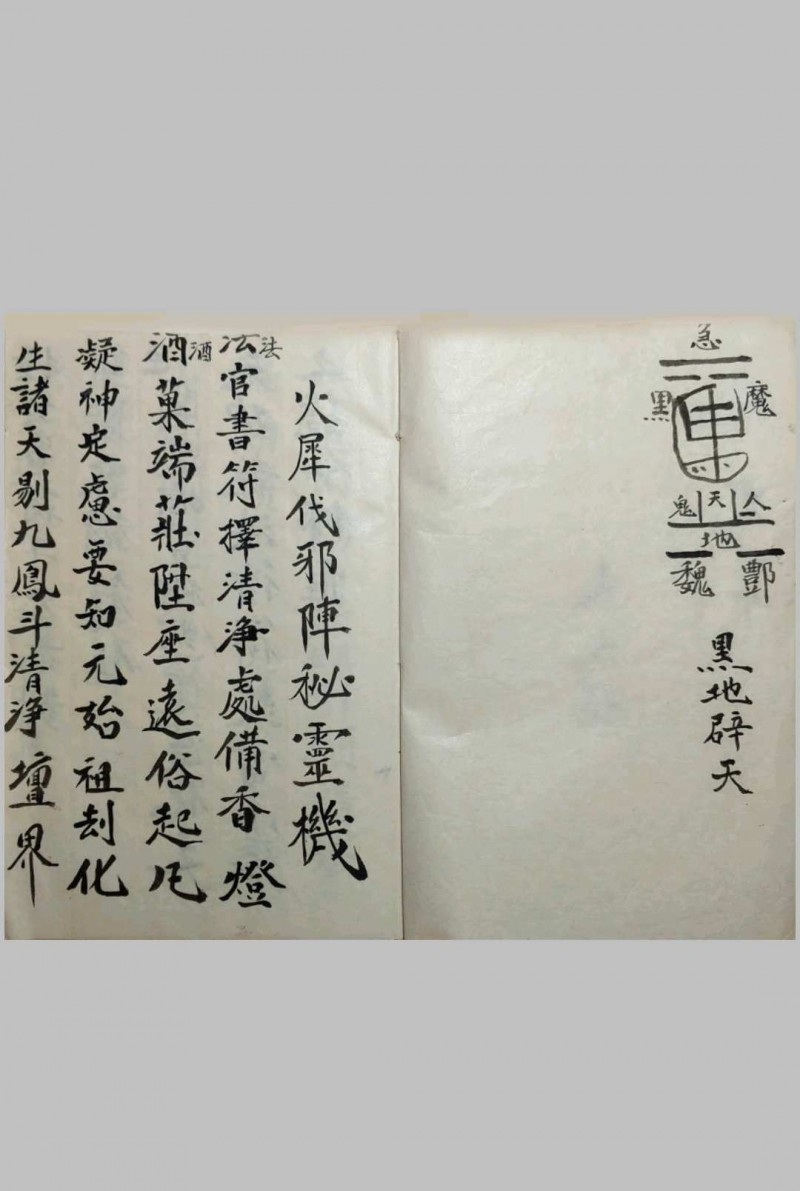 急
黑 魔
車
鬼 天 人
地
魏 酆
黑地辟天
火犀伐邪陣秘靈機
法官書符擇清淨處備香燈
法
酒菓端莊陞座遠俗起凡
酒
凝神定慮要知元始祖刦化
生諸天剔九鳳斗清淨壇界